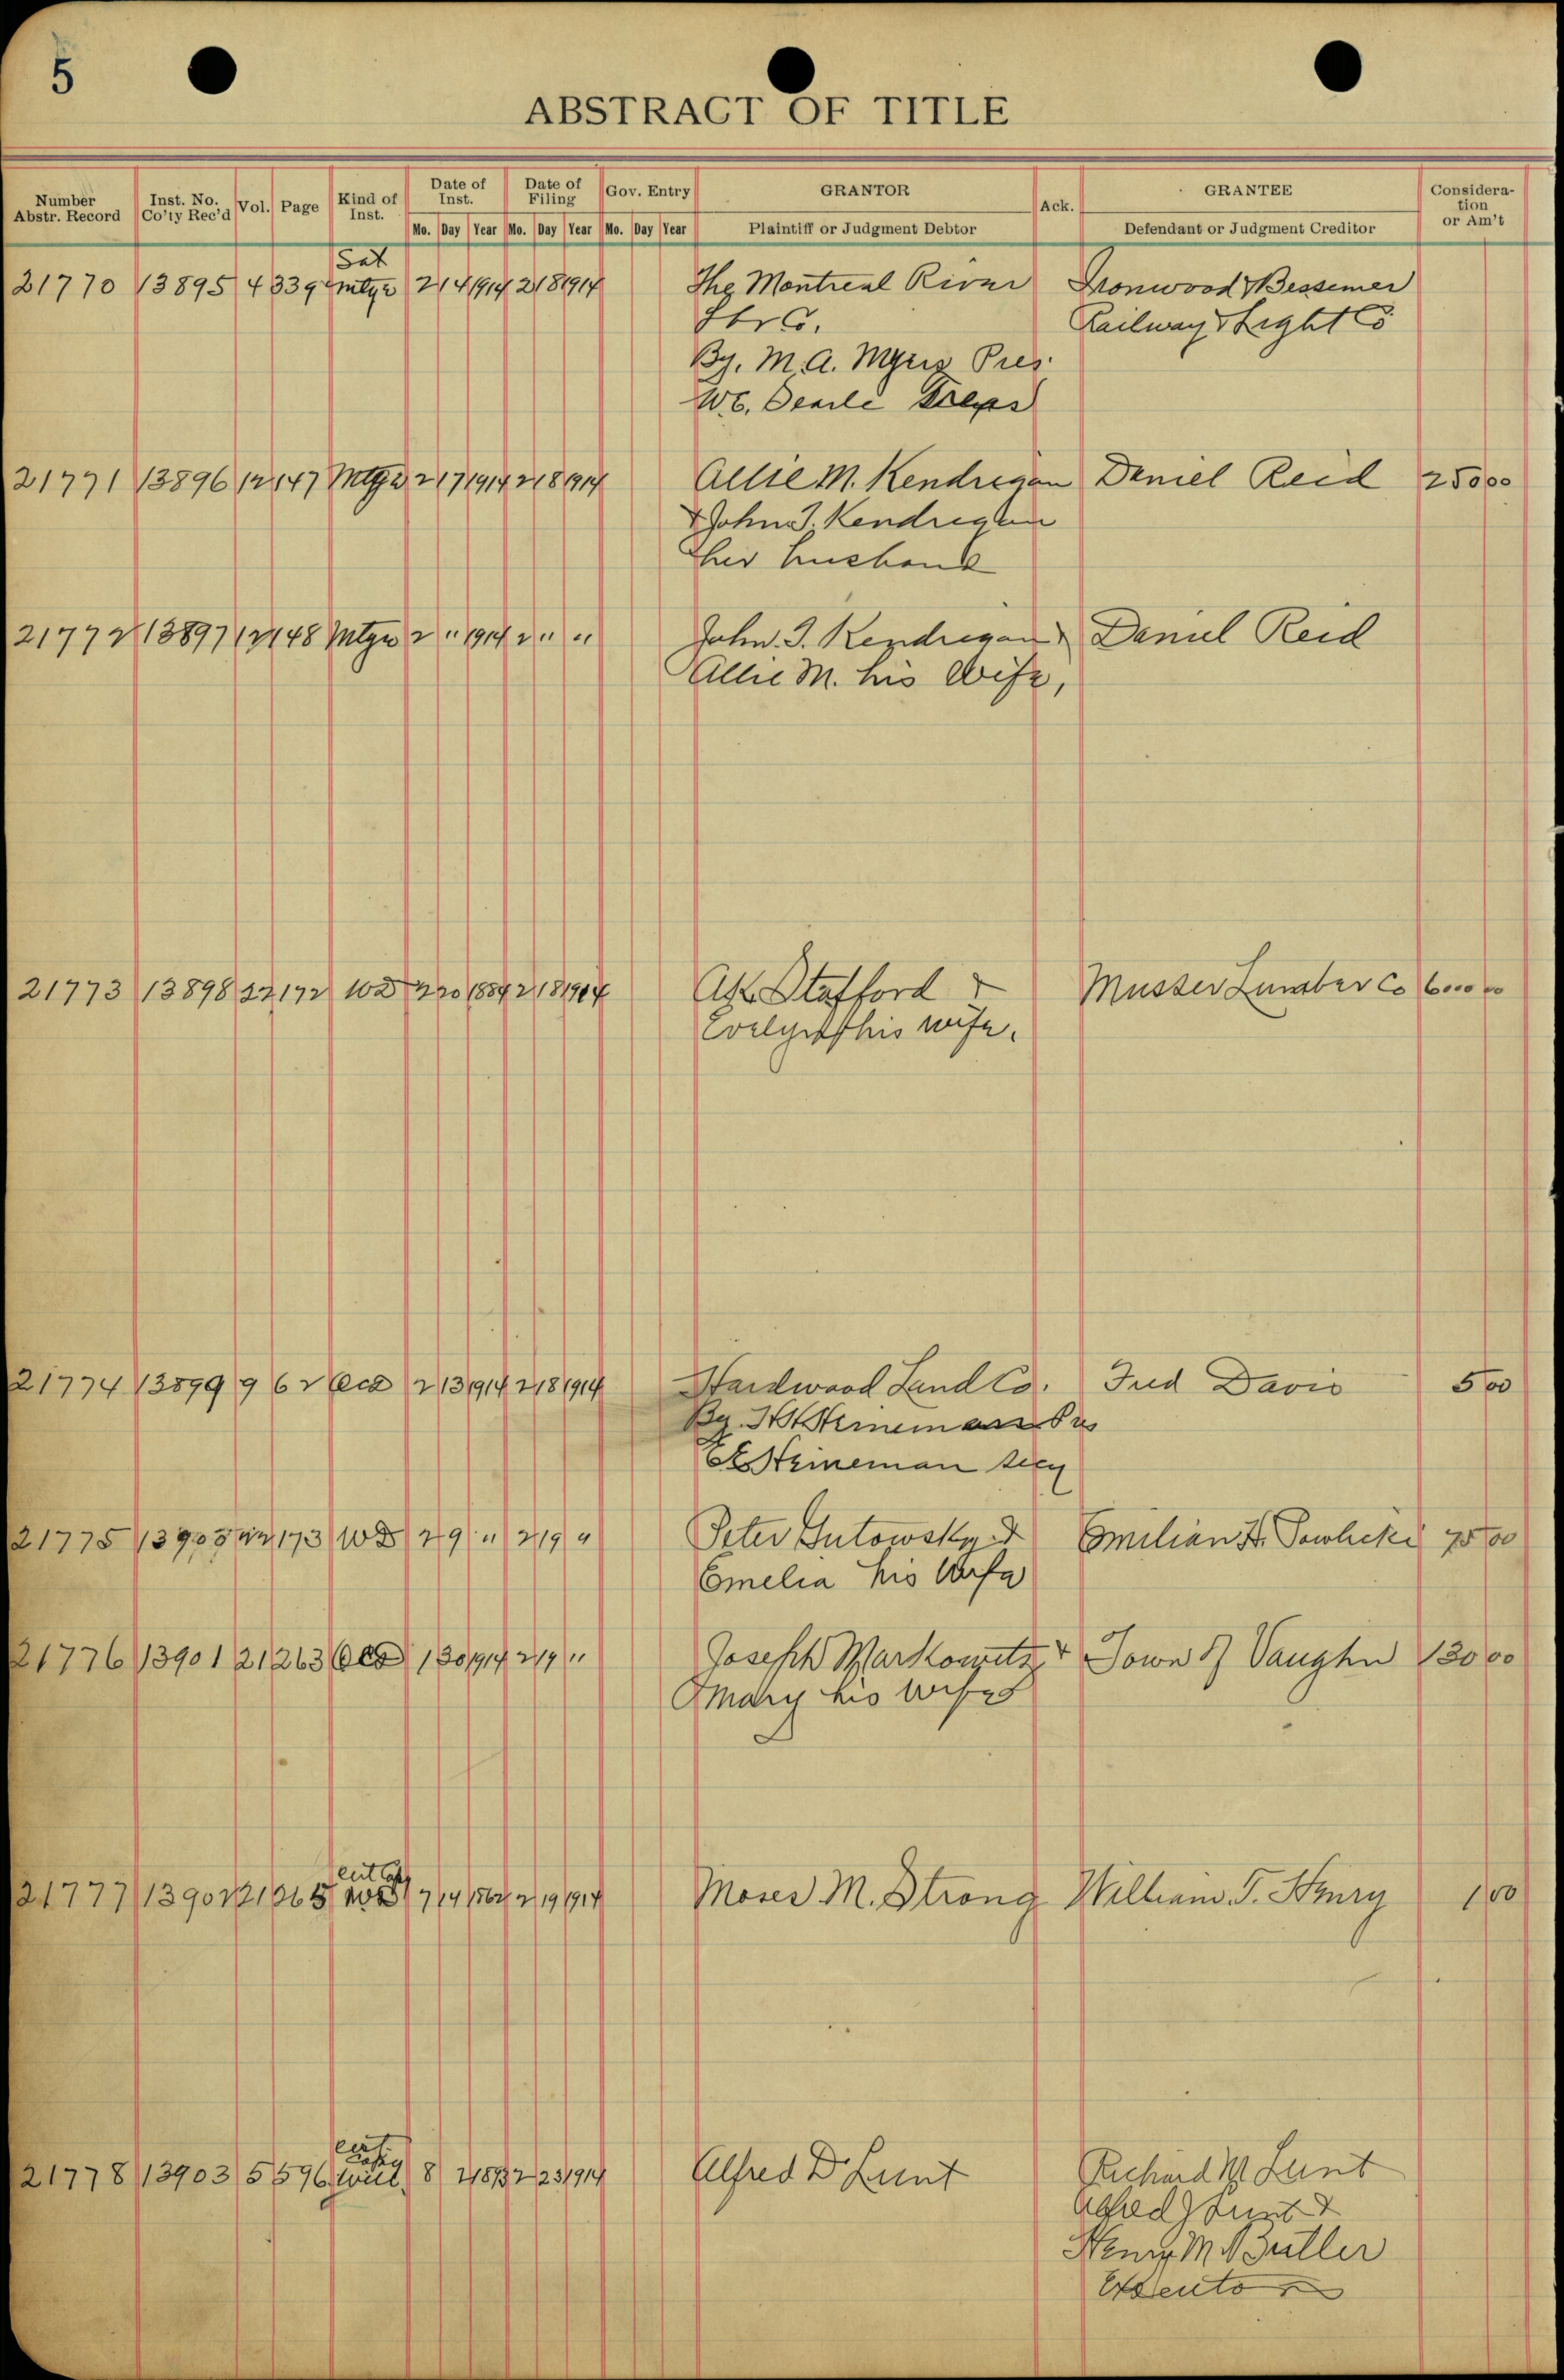 5
ABSTRACT OF TITLE
Number Abstr. Record Inst. No. Co'ty Rec'd Vol. Page Kind of Inst. Date of Inst. Date of Filing Gov. Entry GRANTOR Ack. GRANTEE Consideration or Am't
Mo. Day Year Mo. Day Year Mo. Day Year Plaintiff or Judgment Debtor Defendant or Judgment Creditor
Sat
21770 13895 4 339 Mtge 2 14 1914 2 18 1914 The Montreal River Ironwood & Bessemer
Co. Railway & Light Co
By. M.A. Myers Pres.
21771 13896 12 147 Mtge 2 17 1914 2 18 1914 Allie M. Kendregan Daniel Reid 250 00
& John J. Kendregan
her husband
21772 13897 12 148 Mtge 2 " 1914 2 " " John J. Kendregan & Daniel Reid
Allie M. his Wife,
21773 13898 22 172 WD 2 20 1884 2 18 1914 Stafford & Musser Lumber Co 6000 00
Evelyn his wife.
21774 13899 9 62 2 13 1914 2 18 1914 Hardwood Land Co. Fred Davis 5 00
By. Heineman Pres
Heineman secy
21775 22 173 WD 2 9 " 2 19 " Peter Gutowsky & Emilian 75 00
Emelia his Wife
21776 13901 21 263 1 30 1914 2 19 " Joseph Markowitz & Town of Vaughn 130 00
Mary his wife
Cert Copy
21777 13902 21 265 WD 7 14 1862 2 19 1914 Moses M. Strong William T. Henry 1 00
Cert Copy
21778 13903 5 596 Will 8 2 23 1914 Alfred D. Lunt Richard M Lunt
Alfred Lunt &
Henry M. Butler